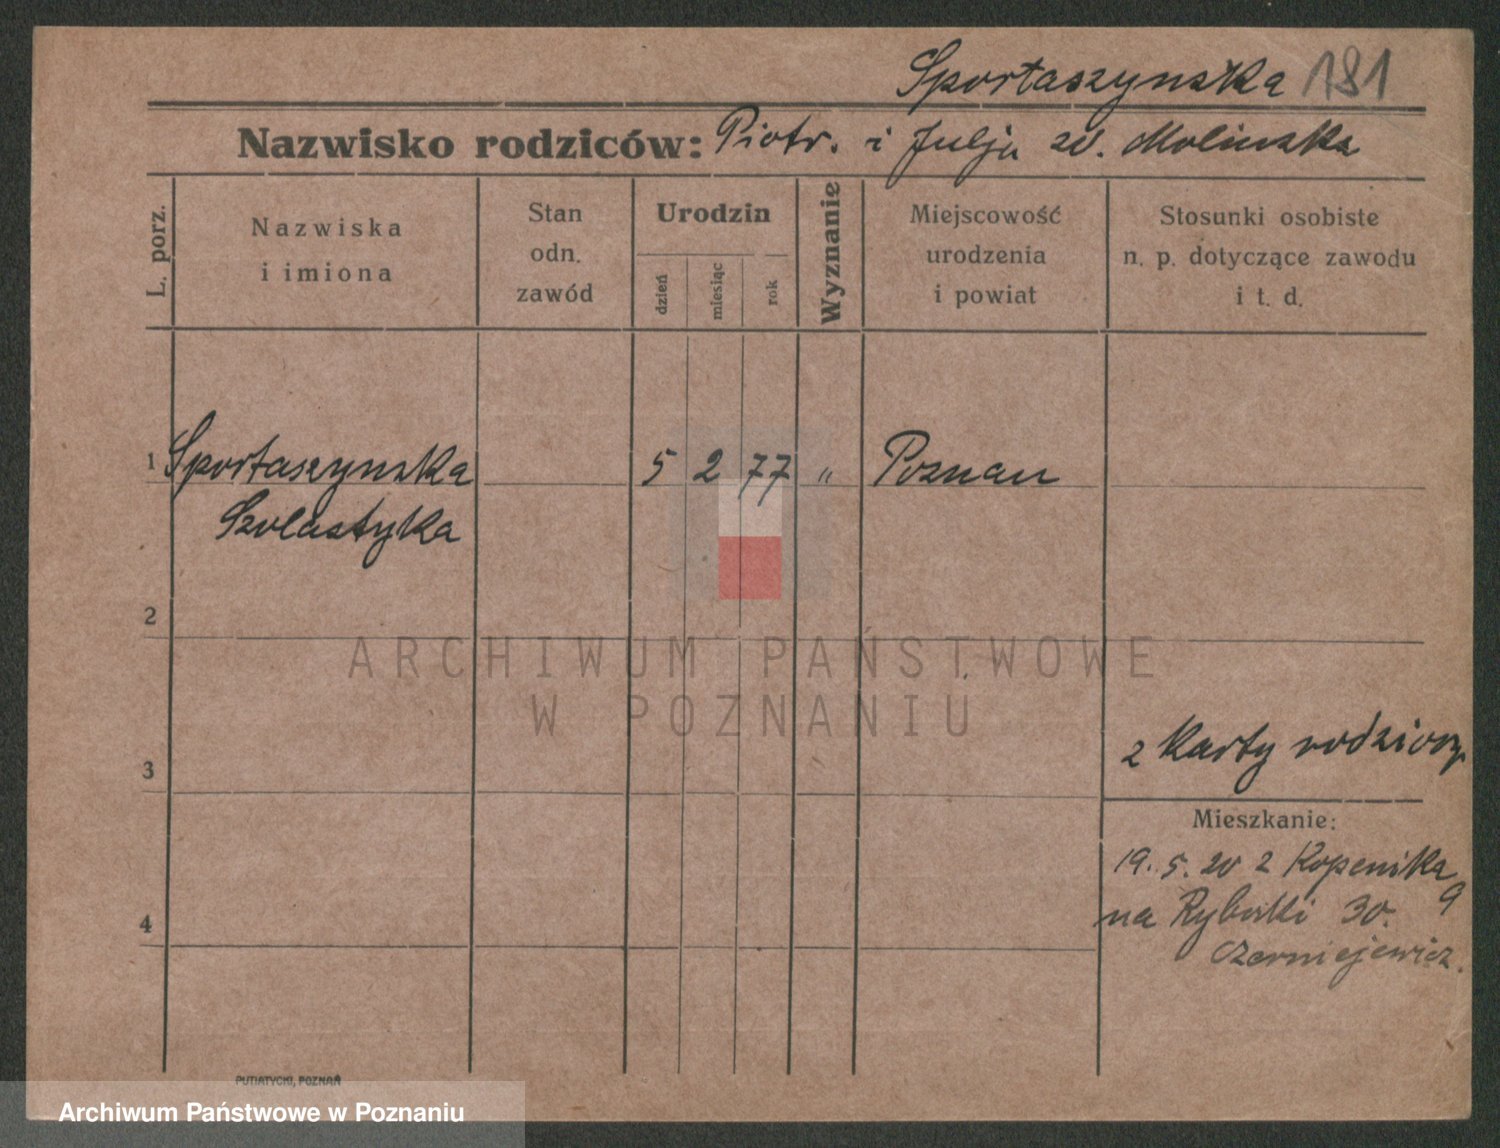 Sportaszynska 181
Nazwisko rodziców: Piotr. i Julja zd. Molinska
L. porz.
Nazwiska
i imiona
Stan
odn.
zawód
Urodzin
dzień
miesiąc
rok
Wyznanie
Miejscowość
urodzenia
i powiat
Stosunki osobiste
n. p. dotyczące zawodu
i t. d.
1 Sportaszynska 5 2 77 " Poznan
Szolastyka
2
ARCHIWUM PAŃSTWOWE
W POZNANIU
z Karty rodzicz.
3
Mieszkanie:
19. 5. 20 z Kopernika 9
na Rybaki 30.
4
Czerniejewicz.
PUTIATYCKI, POZNAŃ
Archiwum Państwowe w Poznaniu